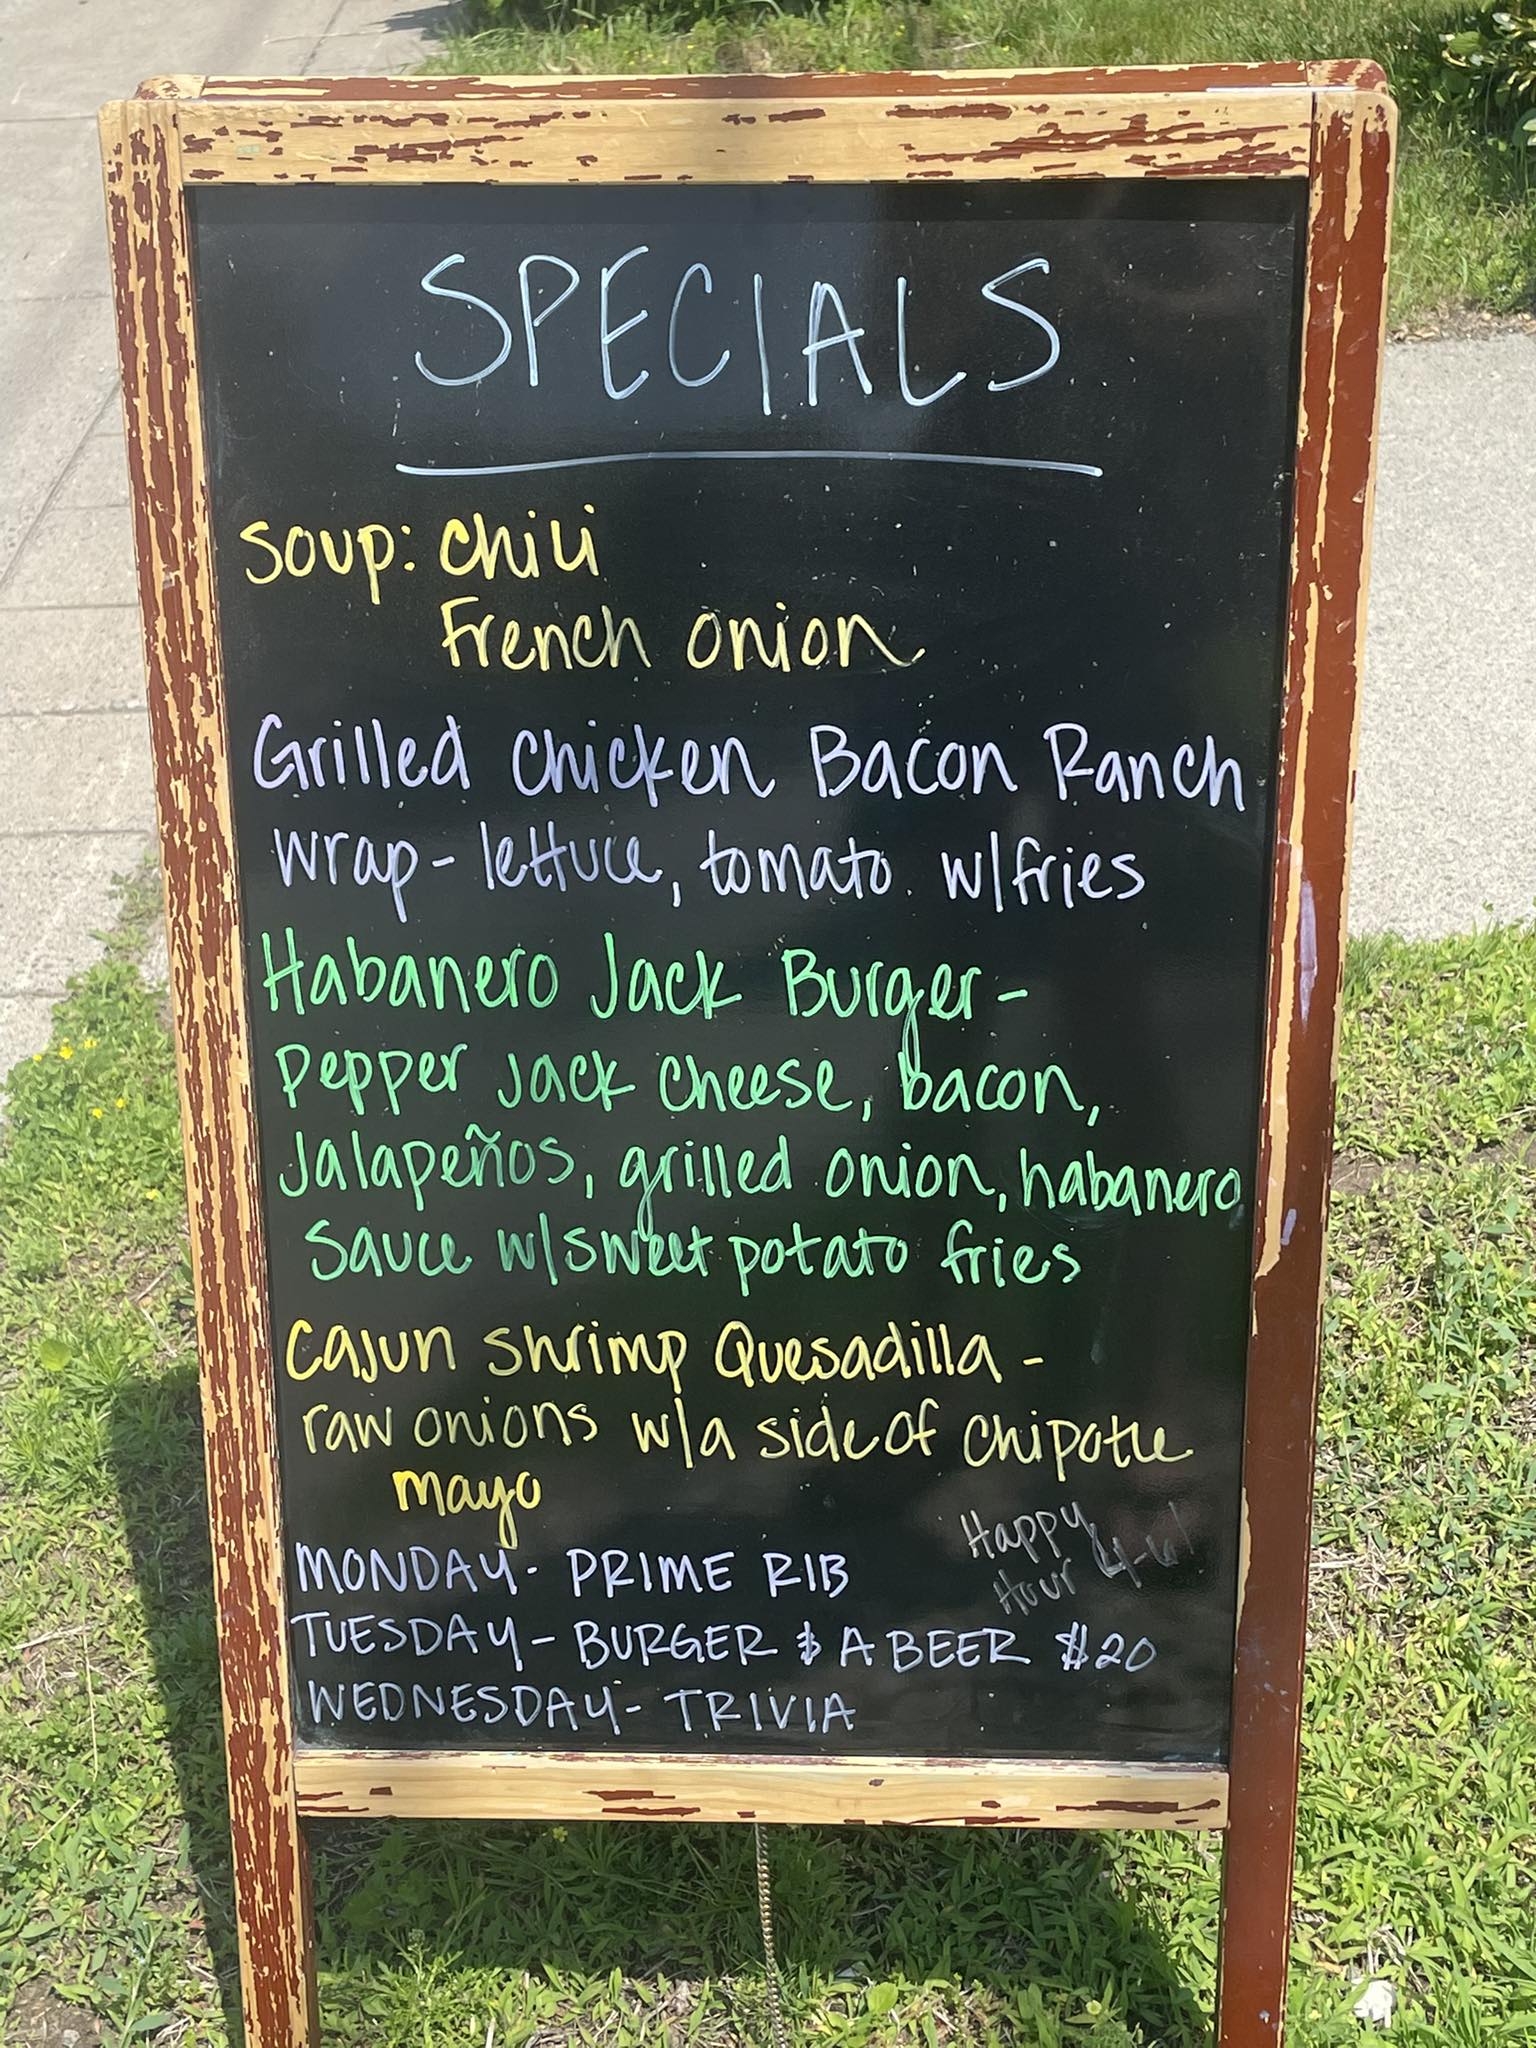 SPECIALS
Soup: Chili
French onion
Grilled chicken Bacon Ranch
wrap - lettuce, tomato w/fries
Habanero Jack Burger -
Pepper Jack Cheese, bacon,
Jalapeños, grilled onion, habanero
Sauce w/sweet potato fries
Cajun Shrimp Quesadilla -
raw onions w/a side of Chipotle
mayo
Happy
Hour 4-6!
MONDAY - PRIME RIB
TUESDAY - BURGER & A BEER $20
WEDNESDAY - TRIVIA